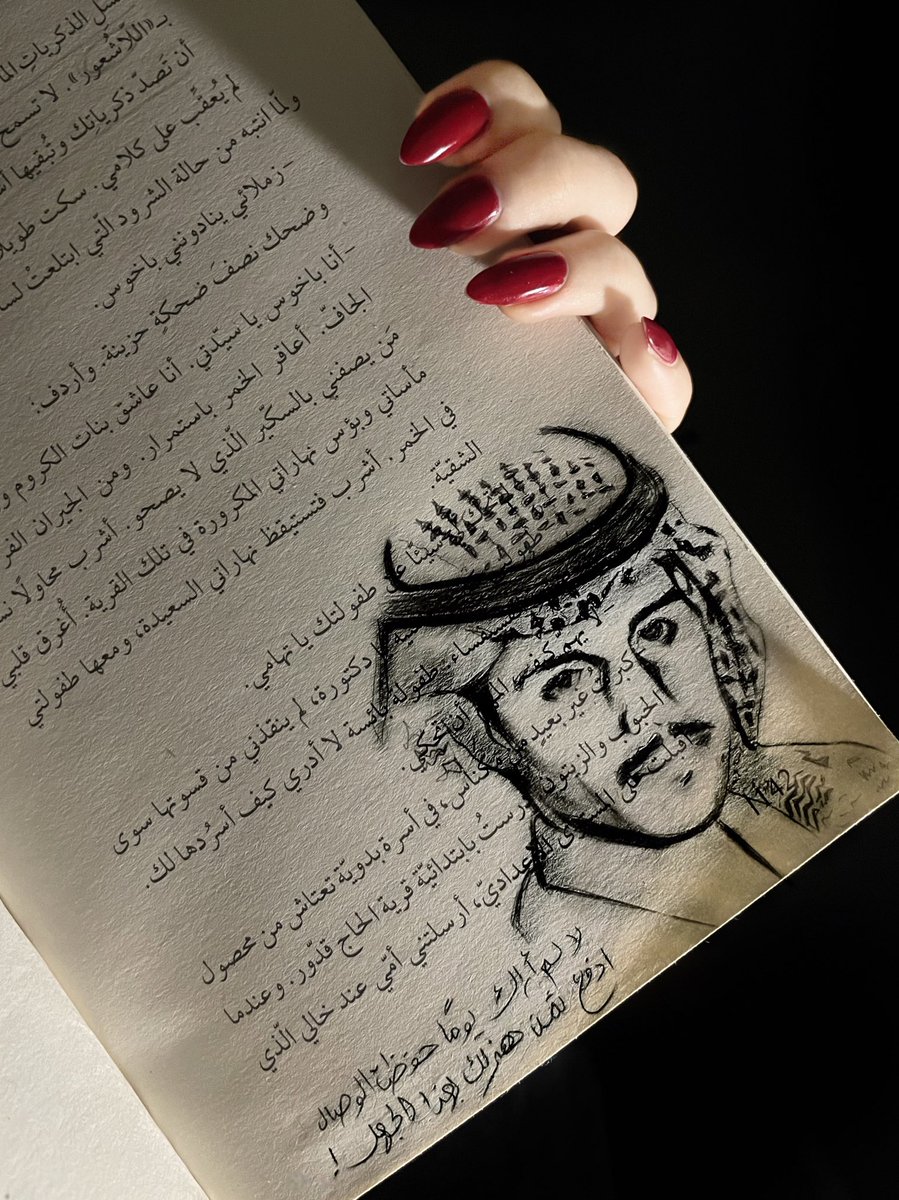 سل الذكرياتِ
بـ«اللّاشعور». لا تسمح
أن تَصدّ ذكرياتِك وتُبقيها
لم يُعقِّب على كلامي. سكت طويلا
ولمّا انتبه من حالة الشرود الّتي ابتلعتْ لسا
-زملائي ينادونني باخوس.
وضحك نصفَ ضحكةٍ حزينة. وأردف:
-أنا باخوس يا سيّدتي. أنا عاشق بنات الكروم و
الجافّ. أعاقر الخمر باستمرار. ومن الجيران القر
مَن يصفني بالسكّير الّذي لا يصحو. أشرب محاولًا نس
مأساتي وبؤس نهاراتي المكرورة في تلك القرية. أُغرق قلبي
في الخمر. أشرب فتستيقظ نهاراتي السعيدة، ومعها طفولتي
الشقيّة.
شيئًا عن طفولتك يا تهامي.
دكتورة، لم ينقذني من قسوتها سوى
طفولة بائسة لا أدري كيف أسرُدها لك.
كيف أن تحكي.
كبرتُ غير بعيد من مكناس، في أسرة بدويّة تعتاش من محصول
الحبوب والزيتون. درستُ بابتدائيّة قرية الحاج قدّور. وعندما
أقبلت على السلك الإعداديّ، أرسلتني أمّي عند خالي الّذي
لا لم أراك يومًا الوصال
هزلك بهذا الجهل!